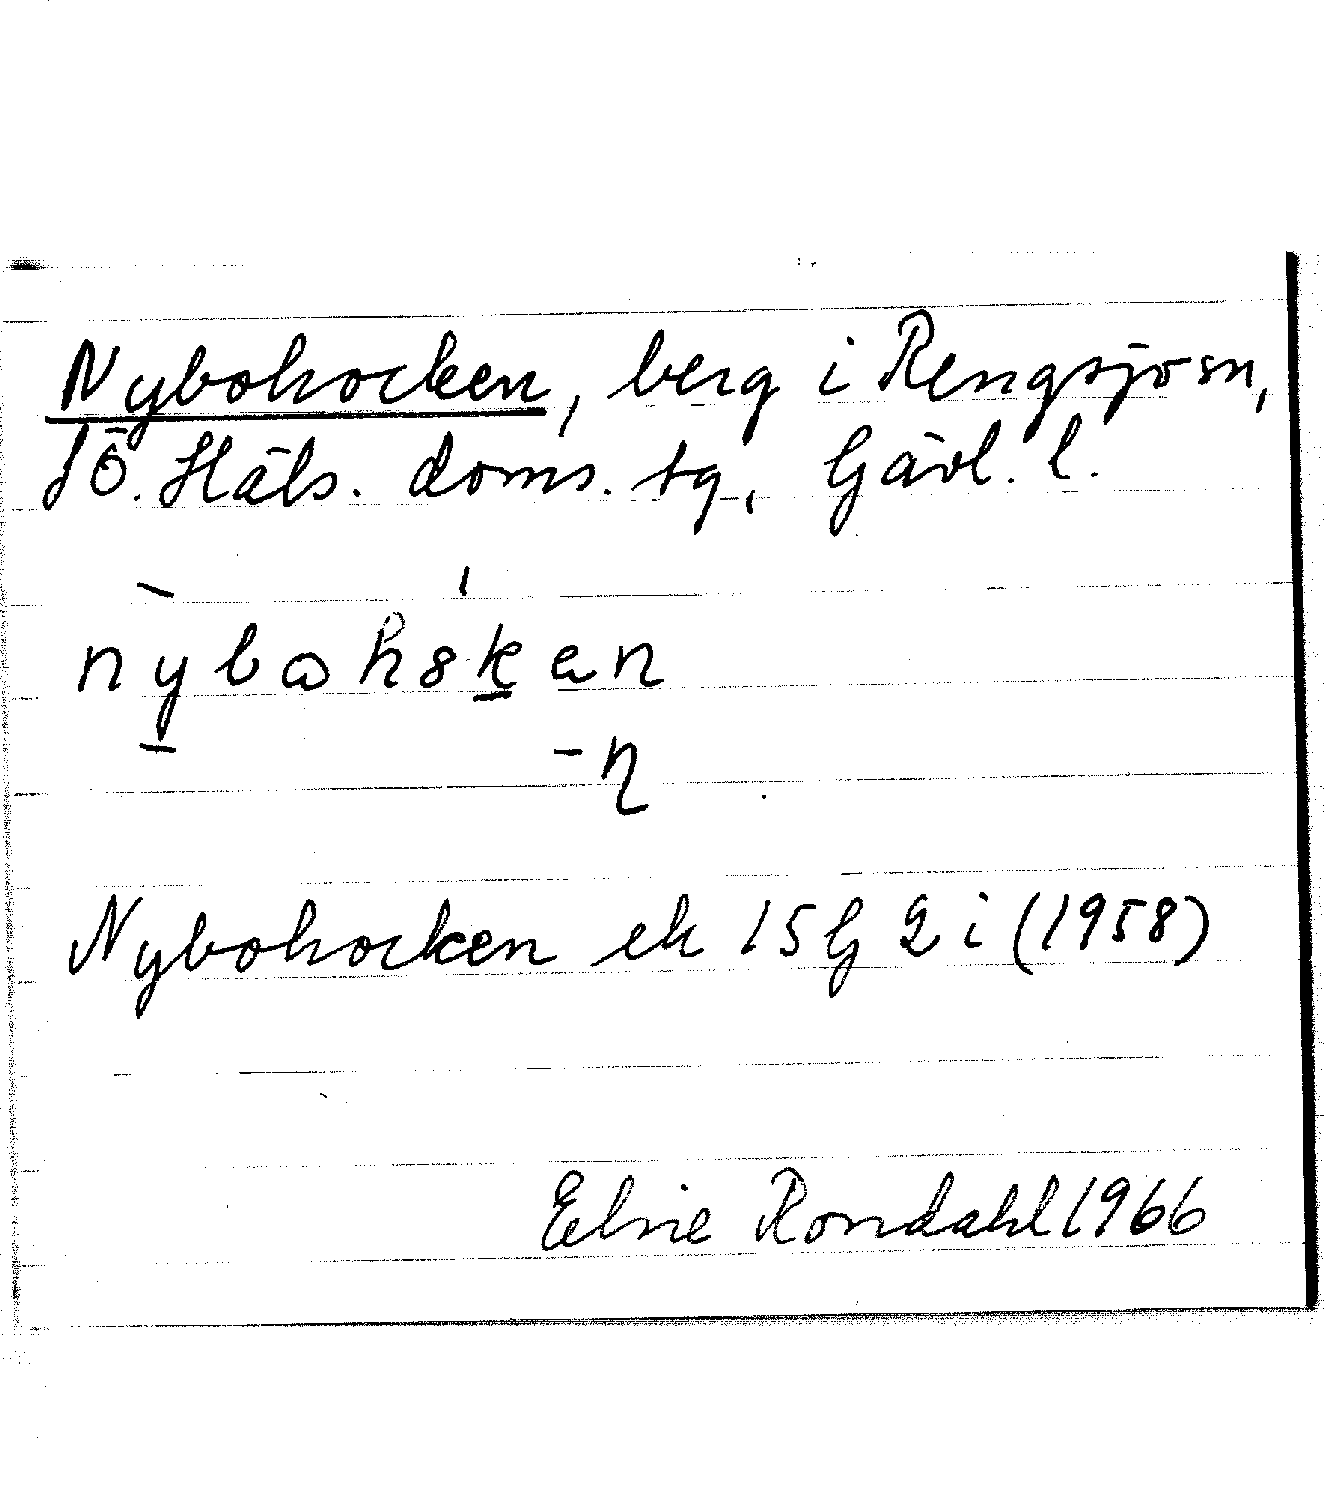 Nybohocken, berg i Rengsjö sn,
SÖ. Häls. doms. tg, Gävl. l.
nybωh8ken
-η
Nybohocken ek 15G 2i (1958)
Elsie Rondahl 1966